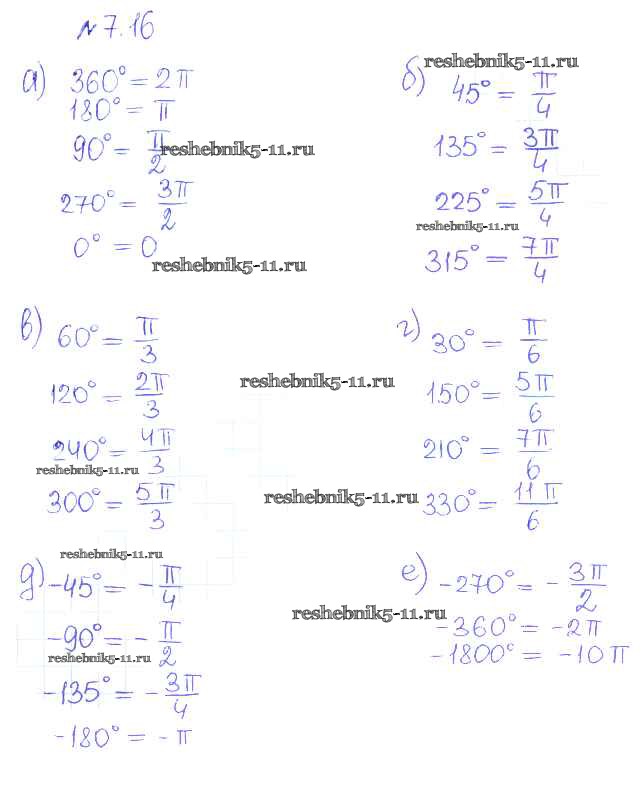 №7.16
а) 360° = 2π
180° = π
90° = π/2
270° = 3π/2
0° = 0
б) 45° = π/4
135° = 3π/4
225° = 5π/4
315° = 7π/4
в) 60° = π/3
120° = 2π/3
240° = 4π/3
300° = 5π/3
г) 30° = π/6
150° = 5π/6
210° = 7π/6
330° = 11π/6
д) -45° = -π/4
-90° = -π/2
-135° = -3π/4
-180° = -π
е) -270° = -3π/2
-360° = -2π
-1800° = -10π
reshebnik5-11.ru
reshebnik5-11.ru
reshebnik5-11.ru
reshebnik5-11.ru
reshebnik5-11.ru
reshebnik5-11.ru
reshebnik5-11.ru
reshebnik5-11.ru
reshebnik5-11.ru
reshebnik5-11.ru